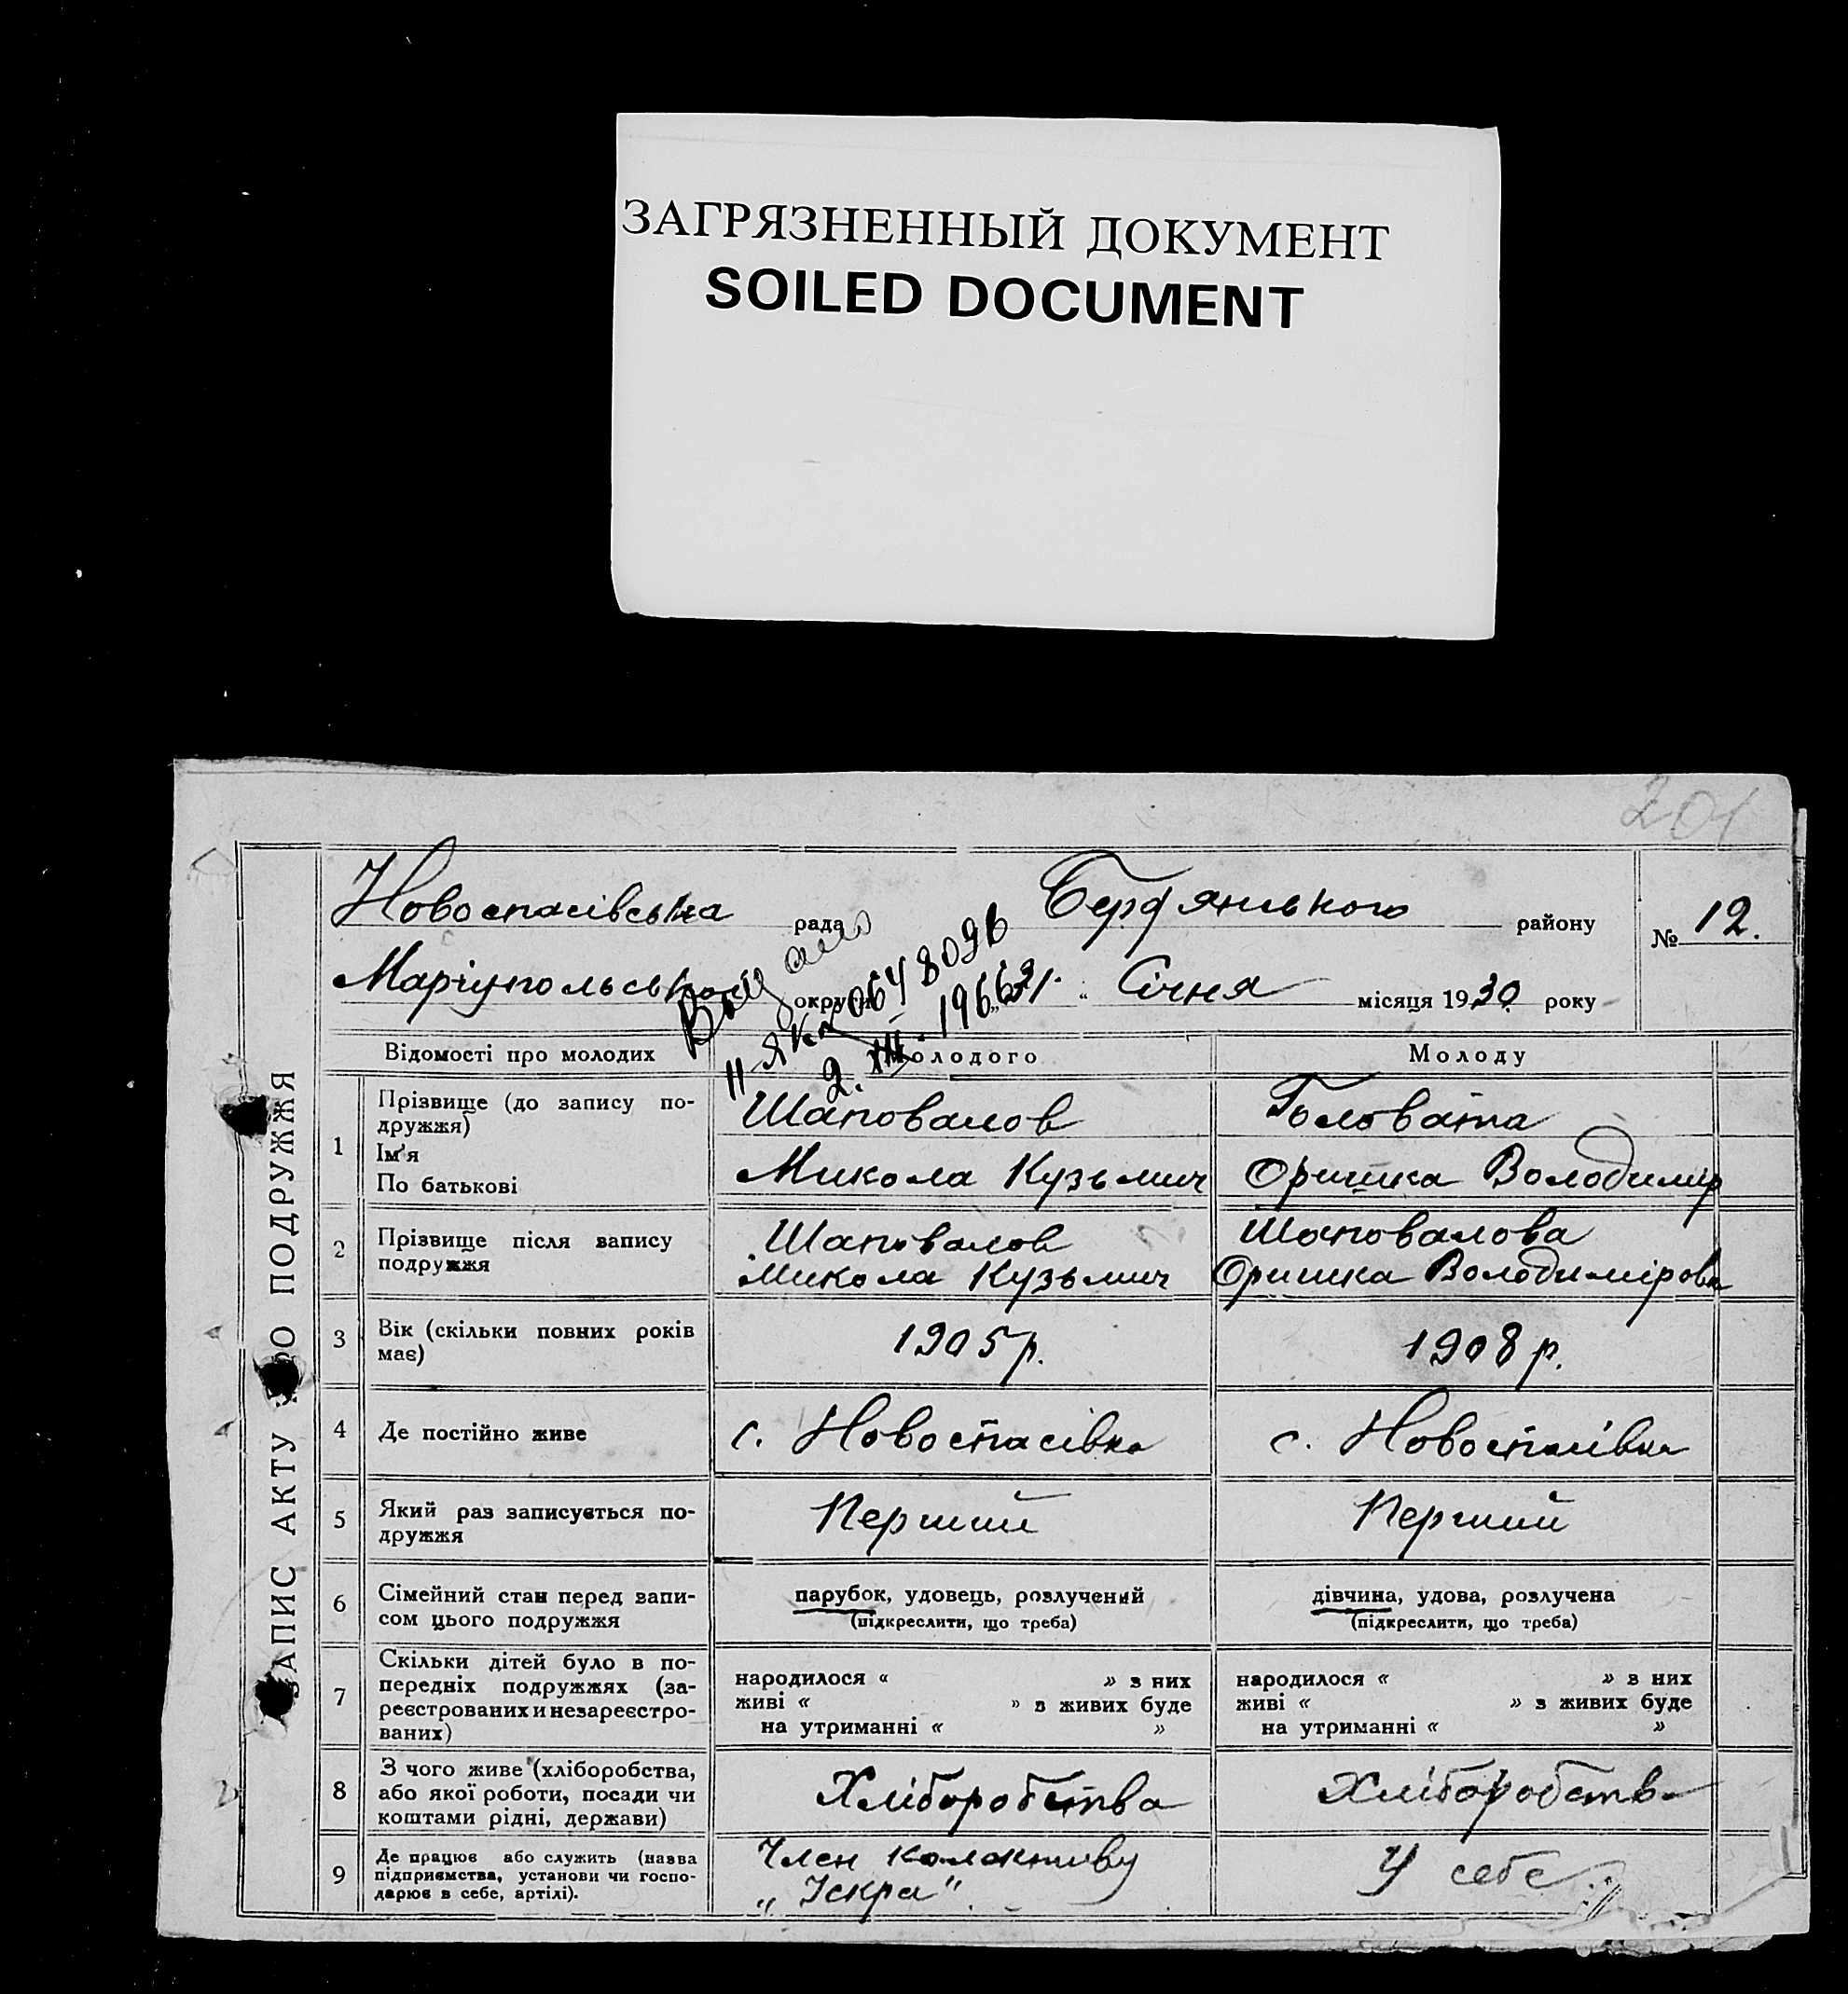 ЗАГРЯЗНЕННЫЙ ДОКУМЕНТ
SOILED DOCUMENT
201
Новоспасівська рада Бердянського району № 12.
Маріупольської округи 31 „ Січня місяця 1930 року
II ЯК № 0648036
2. XII. 1966
ЗАПИС АКТУ ПРО ПОДРУЖЖЯ
Відомості про молодих Молодого Молоду
1 Прізвище (до запису по-
дружжя) Шаповалов Головата
Ім'я
По батькові Микола Кузьмич Оришка Володимир
2 Прізвище після запису
подружжя Шаповалов Шаповалова
Микола Кузьмич Оришка Володиміровн
3 Вік (скільки повних років
має) 1905 р. 1908 р.
4 Де постійно живе с. Новоспасівка с. Новоспасівка
5 Який раз записується по-
дружжя Перший Перший
6 Сімейний стан перед запи-
сом цього подружжя парубок, удовець, розлучений дівчина, удова, розлучена
(підкреслити, що треба) (підкреслити, що треба)
7 Скільки дітей було в по-
передніх подружжях (за-
реєстрованих и незареєстро-
ваних)
народилося « » з них народилося « » з них
живі « » з живих буде живі « » з живих буде
на утриманні « » на утриманні « »
8 З чого живе (хліборобства,
або якої роботи, посади чи
коштами рідні, держави) Хліборобства Хліборобства
9 Де працює або служить (назва
підприємства, установи чи госпо-
дарює в себе, артілі). Член колективу У себе.
„Іскра"